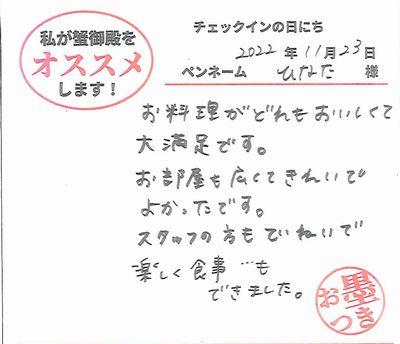 私が蟹御殿を
オススメ
します!
チェックインの日にち
2022年11月23日
ペンネーム ひなた 様
お料理がどれもおいしくて
大満足です。
お部屋も広くてきれいで
よかったです。
スタッフの方もていねいで
楽しく食事…も
できました。
お墨つき